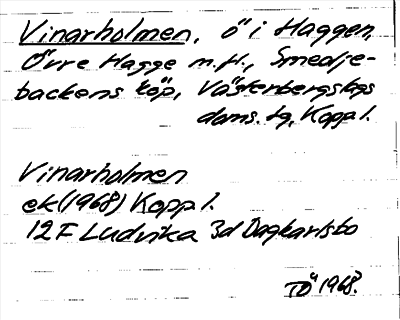 Vinarholmen, ö i Haggen,
Övre Hagge m.fl., Smedje-
backens köp, Västerbergslags
doms. tg, Kopp l.
Vinarholmen
ek (1968) Kopp l.
12 F Ludvika 3d Dagkarlsbo
TÖ 1968.